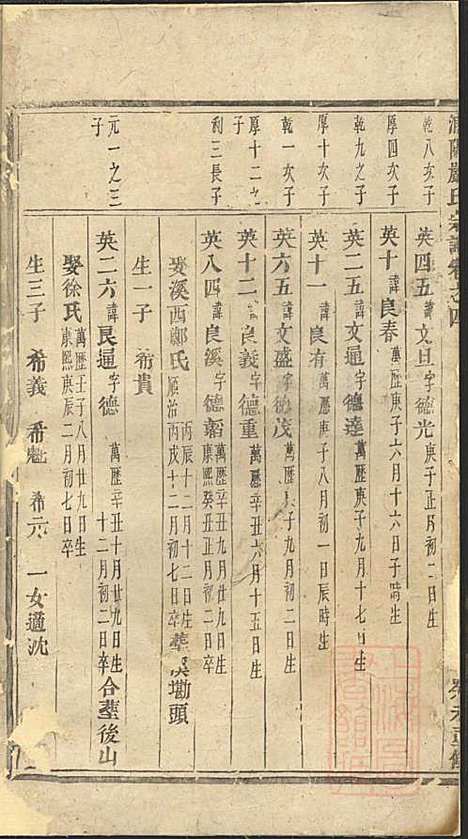 乾八次子
英四五 諱文旦 字德光 庚子正月初二日生
厚四次子
英十 諱良春 萬歷庚子六月十六日子時生
乾九之子
英二五 諱文通 字德達 萬歷庚子九月十七日生
厚十次子
英十一 諱良有 萬歷庚子八月初一日辰時生
乾一次子
英六五 諱文盛 字德茂 萬歷庚子九月初二日生
厚十二之子
英十二 諱良義 字德重 萬歷辛丑六月十五日生
利三長子
英八四 諱良溪 字德韜 萬歷辛丑九月廿九日生
康熙癸丑正月初二日卒
娶溪西鄭氏 丙辰十二月十二日生
順治丙戌十二月初七日卒 塟吳勘頭
生一子 希貴
元一之三子
英二六 諱良通 字德 萬歷辛丑十月廿九日生
十二月初二日卒 合塟後山
娶徐氏 萬歷壬子八月廿九日生
康熙庚辰二月初七日卒
生三子 希義 希魁 希六 一女適沈